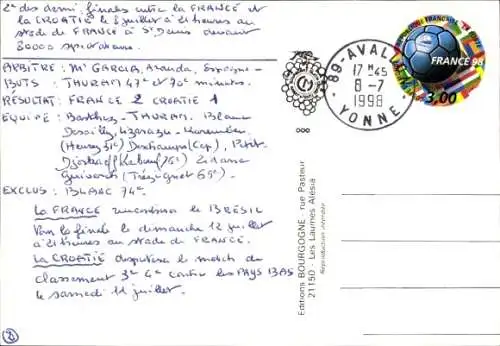 2e des demi finales entre la FRANCE et
la CROATIE le 8 juillet à 21 heures au
stade de FRANCE à St Denis devant
80000 spectateurs.
ARBITRE : Mr GARCIA, Aranda, Espagne
BUTS : THURAM 47e et 70e minutes.
RÉSULTAT : FRANCE 2 CROATIE 1
EQUIPE : Barthez - THURAM. Blanc
Desailly, Lizarazu - Karembeu
(Henry 31e) Deschamps (Cap), Petit
Djorkaeff (Leboeuf 76e) Zidane
Guivarch (Trézéguet 69e).
EXCLUS : BLANC 74e
La FRANCE rencontrera le BRÉSIL
Pour la finale le dimanche 12 juillet
à 21 heures au stade de FRANCE.
La CROATIE disputera le match de
classement 3e 4e contre les PAYS BAS
le samedi 11 juillet.
89-AVALLON
17 H 45
8-7
1998
YONNE
FRANCE 98
3,00
Editions BOURGOGNE - rue Pasteur
21150 - Les Laumes Alésia
Reproduction interdite